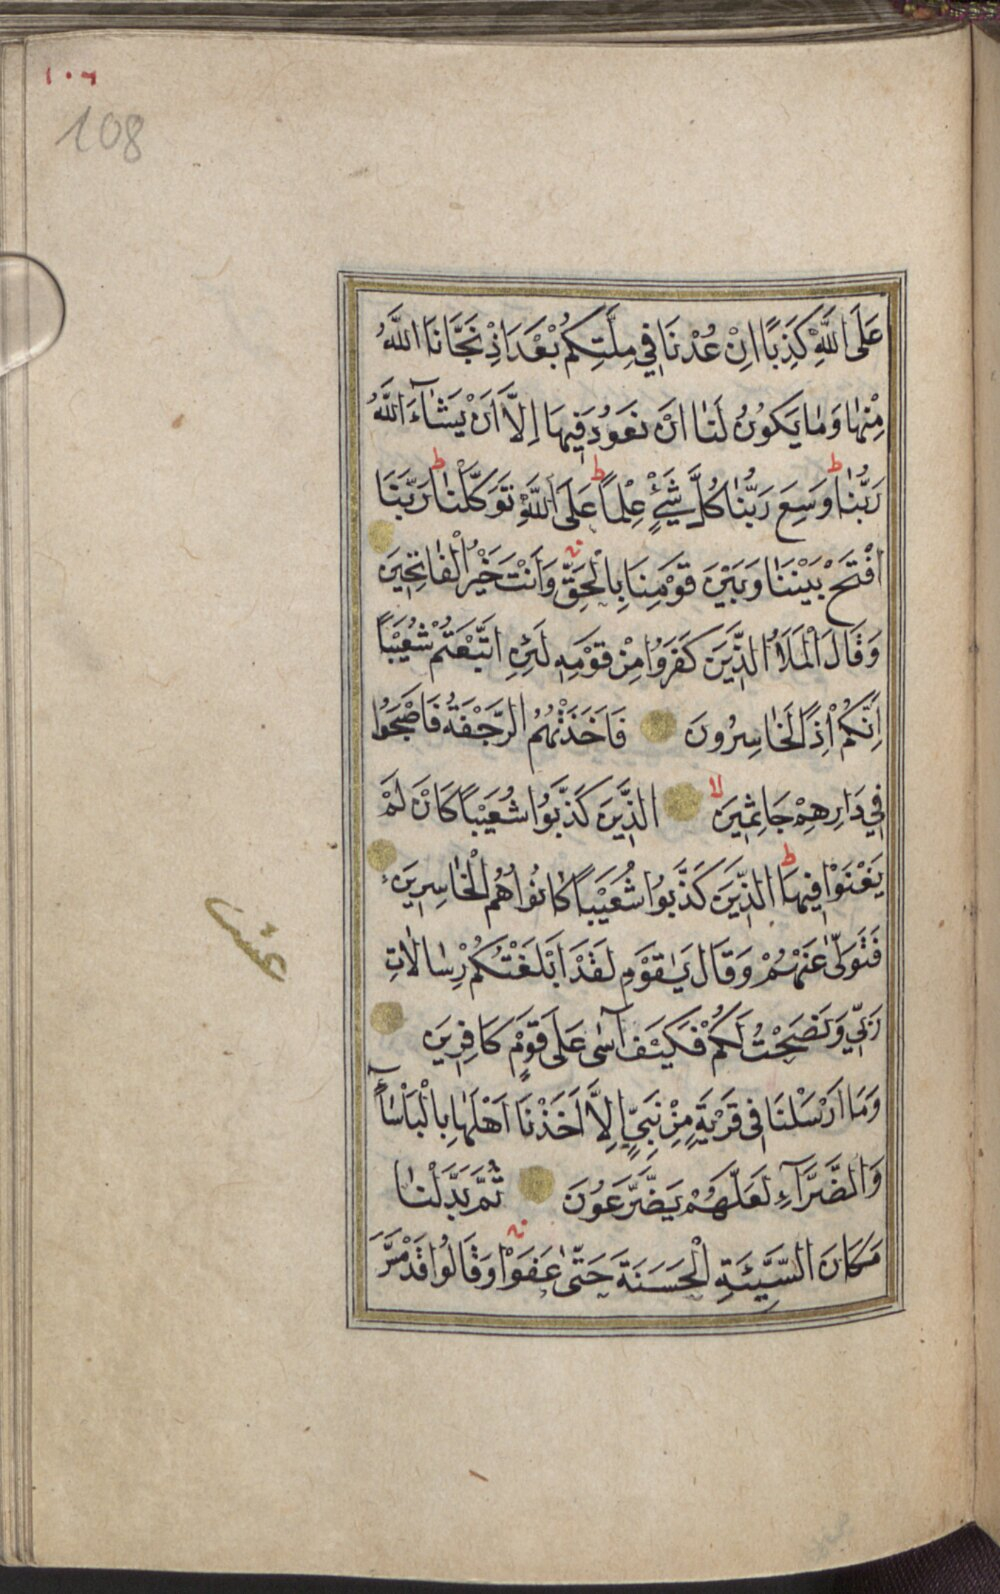 ١٠٦
108
عَلَى اللَّهِ كَذِبًا اِنْ عُدْنَا فِي مِلَّتِكُمْ بَعْدَ اِذْ نَجَّانَا اللَّهُ
مِنْهَا وَمَا يَكُونُ لَنَا اَنْ نَعُودَ فِيهَا اِلَّا اَنْ يَشَاءَ اللَّهُ
رَبُّنَا ط وَسِعَ رَبُّنَا كُلَّ شَيْءٍ عِلْمًا ط عَلَى اللَّهِ تَوَكَّلْنَا ط رَبَّنَا
افْتَحْ بَيْنَنَا وَبَيْنَ قَوْمِنَا بِالْحَقِّ وَاَنْتَ خَيْرُ الْفَاتِحِينَ
وَقَالَ الْمَلَاُ الَّذِينَ كَفَرُوا مِنْ قَوْمِهِ لَئِنِ اتَّبَعْتُمْ شُعَيْبًا
اِنَّكُمْ اِذًا لَخَاسِرُونَ فَاَخَذَتْهُمُ الرَّجْفَةُ فَاَصْبَحُوا
فِي دَارِهِمْ جَاثِمِينَ لا الَّذِينَ كَذَّبُوا شُعَيْبًا كَاَنْ لَمْ
يَغْنَوْا فِيهَا ط الَّذِينَ كَذَّبُوا شُعَيْبًا كَانُوا هُمُ الْخَاسِرِينَ
فَتَوَلّٰى عَنْهُمْ وَقَالَ يَاقَوْمِ لَقَدْ اَبْلَغْتُكُمْ رِسَالَاتِ
رَبِّي وَنَصَحْتُ لَكُمْ فَكَيْفَ آسٰى عَلَى قَوْمٍ كَافِرِينَ
وَمَا اَرْسَلْنَا فِي قَرْيَةٍ مِنْ نَبِيٍّ اِلَّا اَخَذْنَا اَهْلَهَا بِالْبَاْسَاءِ
وَالضَّرَّاءِ لَعَلَّهُمْ يَضَّرَّعُونَ ثُمَّ بَدَّلْنَا
مَكَانَ السَّيِّئَةِ الْحَسَنَةَ حَتّٰى عَفَوْا وَقَالُوا قَدْ مَسَّ
عشر